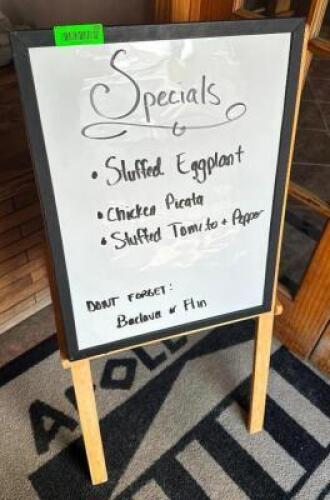 Specials
• Stuffed Eggplant
• Chicken Picata
• Stuffed Tomato + Pepper
DONT FORGET:
Baclava or Flin
APOLLO